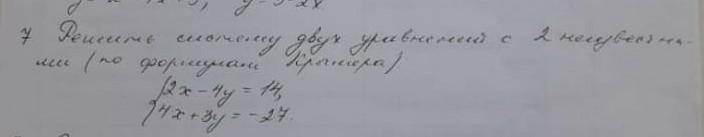 7 Решить систему двух уравнений с 2 неизвестны-
ми (по формулам Крамера)
2x - 4y = 14,
4x + 3y = -27.